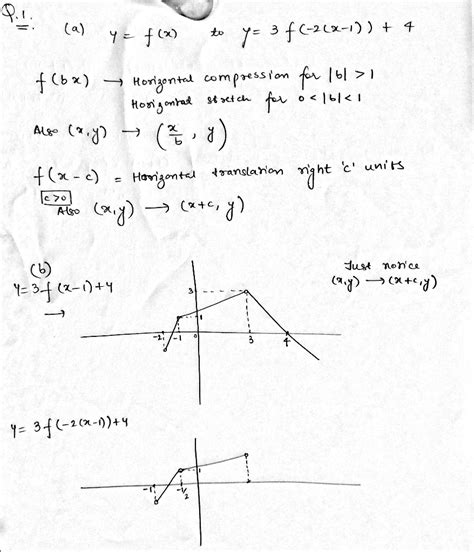 Q.1.
(a) y = f(x) to y = 3 f(-2(x-1)) + 4
f(bx) → Horizontal compression for |b| > 1
Horizontal stretch for 0 < |b| < 1
Also (x,y) → (x/b, y)
f(x-c) = Horizontal translation right 'c' units
c>0
Also (x,y) → (x+c, y)
(b)
Just notice
y = 3 f(x-1)+4
(x,y) → (x+c,y)
→
3
1
-2 -1 0 3 4
y = 3 f(-2(x-1))+4
1
-1 -1/2